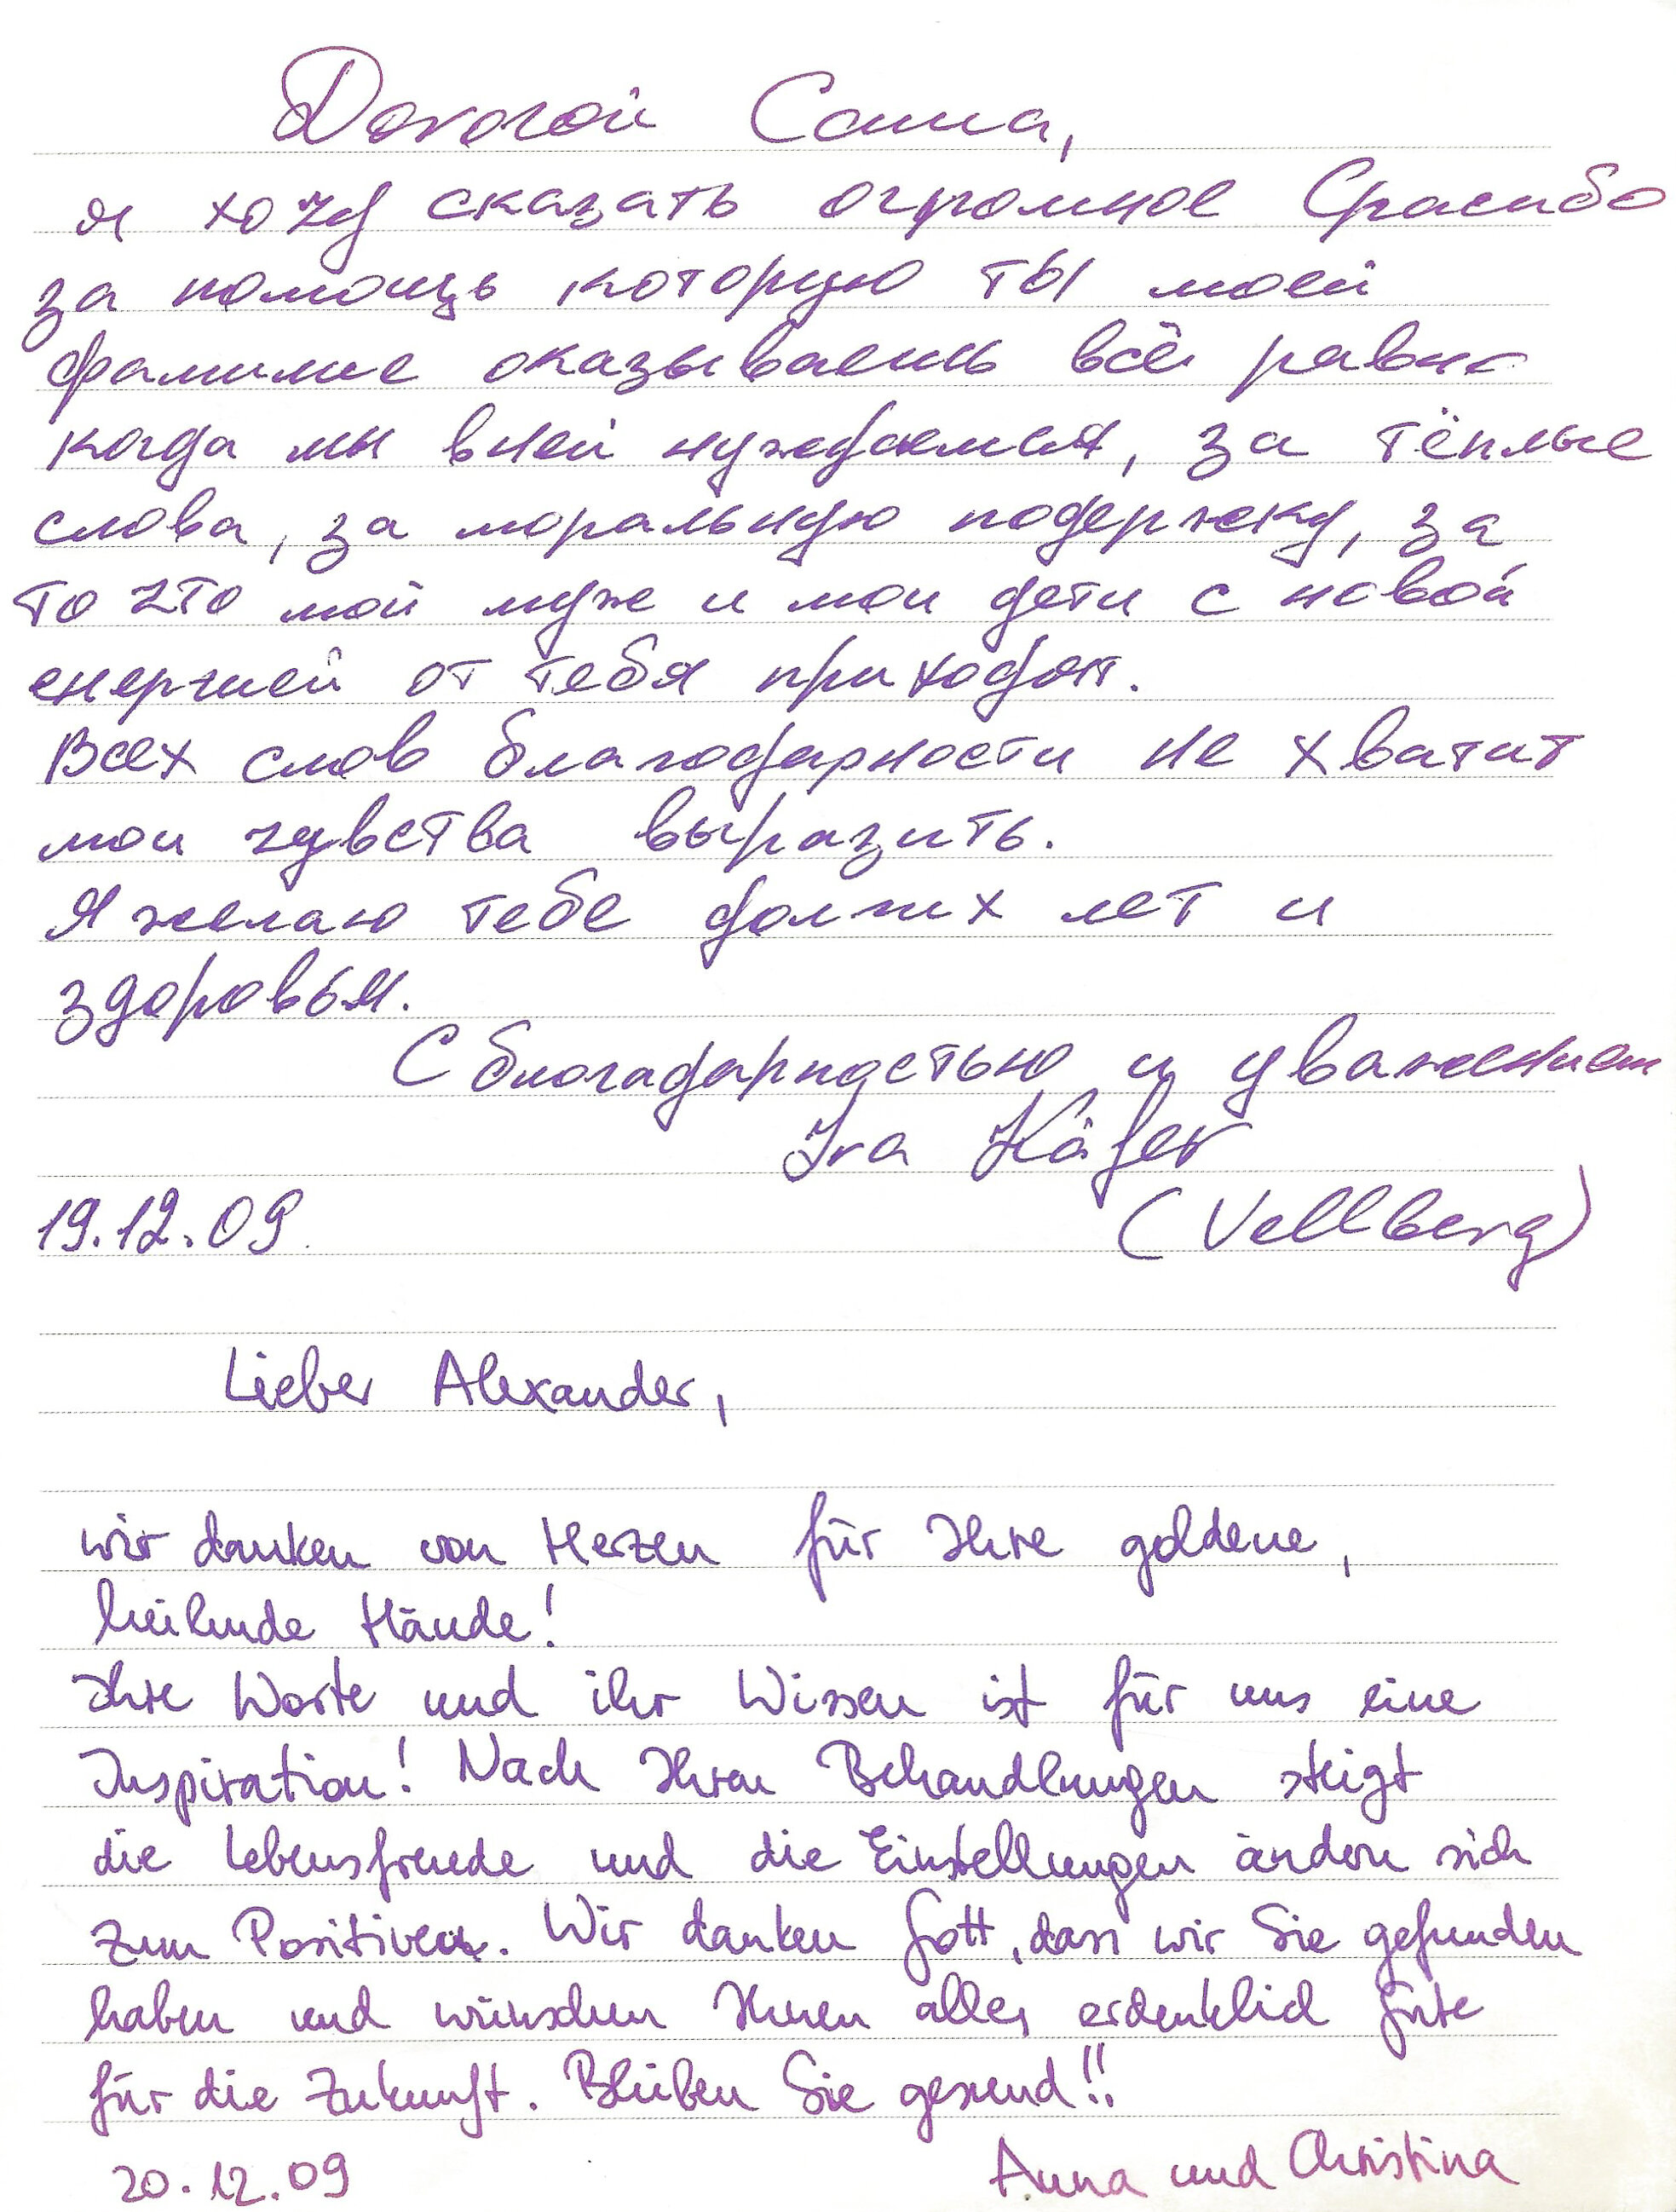 Дорогой Саша,
я хочу сказать огромное Спасибо
за помощь которую ты моей
фамилие оказываешь всё равно
когда мы в ней нуждаемся, за тёплые
слова, за моральную подержку, за
то что мой муж и мои дети с новой
енергией от тебя приходят.
Всех слов благодарности не хватит
мои чувства выразить.
Я желаю тебе долгих лет и
здоровья.
С благадарностью и уважением
Ira Käfer
19.12.09 (Vellberg)
Lieber Alexander,
wir danken von Herzen für Ihre goldene,
heilende Hände!
Ihre Worte und ihr Wissen ist für uns eine
Inspiration! Nach Ihren Behandlungen steigt
die Lebensfreude und die Einstellungen ändern sich
zum Positiven. Wir danken Gott, dass wir Sie gefunden
haben und wünschen Ihnen alles erdenklich Gute
für die Zukunft. Bleiben Sie gesund!!
20.12.09 Anna und Christina